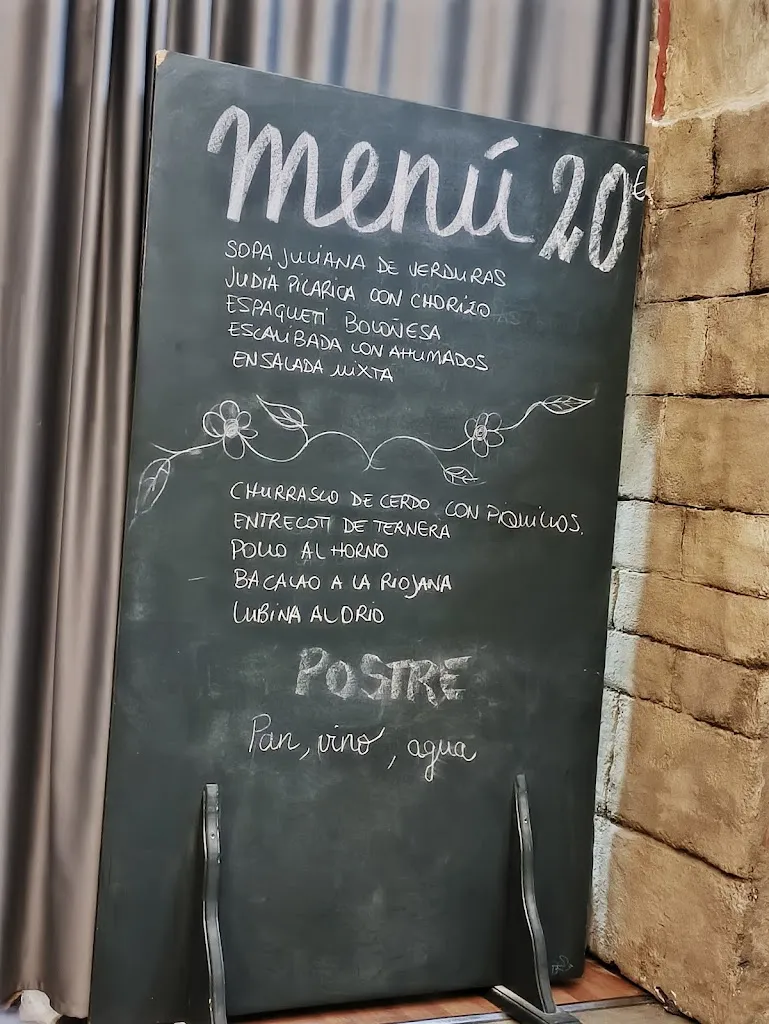 menú 20€
SOPA JULIANA DE VERDURAS
JUDÍA PILARICA CON CHORIZO
ESPAGUETI BOLOÑESA
ESCALIBADA CON AHUMADOS
ENSALADA MIXTA
CHURRASCO DE CERDO CON PIQUILLOS.
ENTRECOT DE TERNERA
POLLO AL HORNO
BACALAO A LA RIOJANA
LUBINA AL ORIO
POSTRE
Pan, vino, agua